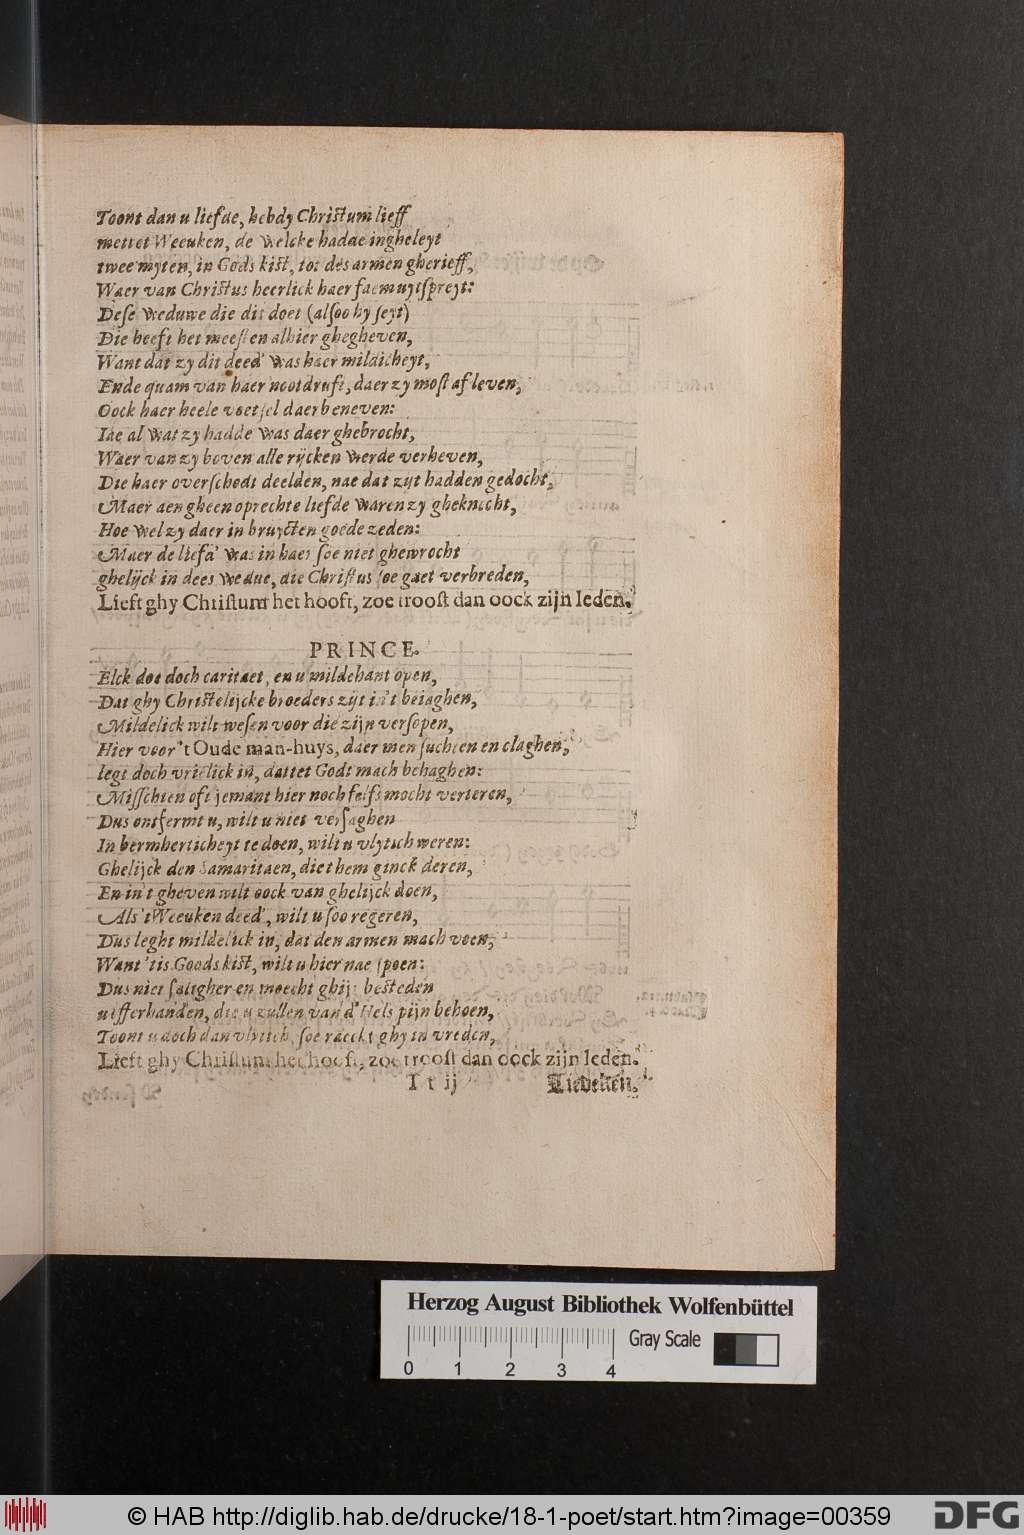 Toont dan u liefde, hebdy Christum lieff
mettet Weeuken, de welcke hadde ingheleyt
twee myten, in Gods kist, tot des armen gherieff,
Waer van Christus heerlick haer faem uytspreyt:
Dese weduwe die dit doet (alsoo hy seyt)
Die heeft het meesten alhier ghegheven,
Want dat zy dit deed' was haer mildicheyt,
Ende quam van haer nootdruft, daer zy most af leven,
Oock haer heele voetsel daer beneven:
Iae al wat zy hadde was daer ghebrocht,
Waer van zy boven alle rijcken werde verheven,
Die haer overschodt deelden, nae dat zijt hadden gedocht,
Maer aen gheen oprechte liefde waren zy gheknocht,
Hoe wel zy daer in bruycten goede zeden:
Maer de liefd' was in haer soe niet ghewrocht
ghelijck in dees wedue, die Christus soe gaet verbreden,
Lieft ghy Christum het hooft, zoe troost dan oock zijn leden.
PRINCE.
Elck doe doch caritaet, en u mildehant open,
Dat ghy Christelijcke broeders zijt in't beiaghen,
Mildelick wilt wesen voor die zijn versopen,
Hier voor 't Oude man-huys, daer men suchten en claghen,
legt doch vrielick in, dattet Godt mach behaghen:
Misschien oft jemant hier noch selfs mocht verteren,
Dus ontfermt u, wilt u niet versaghen
In bermherticheyt te doen, wilt u vlytich weren:
Ghelijck den Samaritaen, diet hem ginck deren,
En in't gheven wilt oock van ghelijck doen,
Als 't Weeuken deed', wilt u soo regeren,
Dus leght mildelick in, dat den armen mach voen,
Want 'tis Goods kist, wilt u hier nae spoen:
Dus niet saligher en moecht ghijt besteden
uitterhanden, die u zullen van d'Hels pijn behoen,
Toont u doch dan vlytich, soe raeckt ghy in vreden,
Lieft ghy Christum het hooft, zoe troost dan oock zijn leden.
T t ij Liedeken,
Herzog August Bibliothek Wolfenbüttel
Gray Scale
0 1 2 3 4
© HAB http://diglib.hab.de/drucke/18-1-poet/start.htm?image=00359
DFG